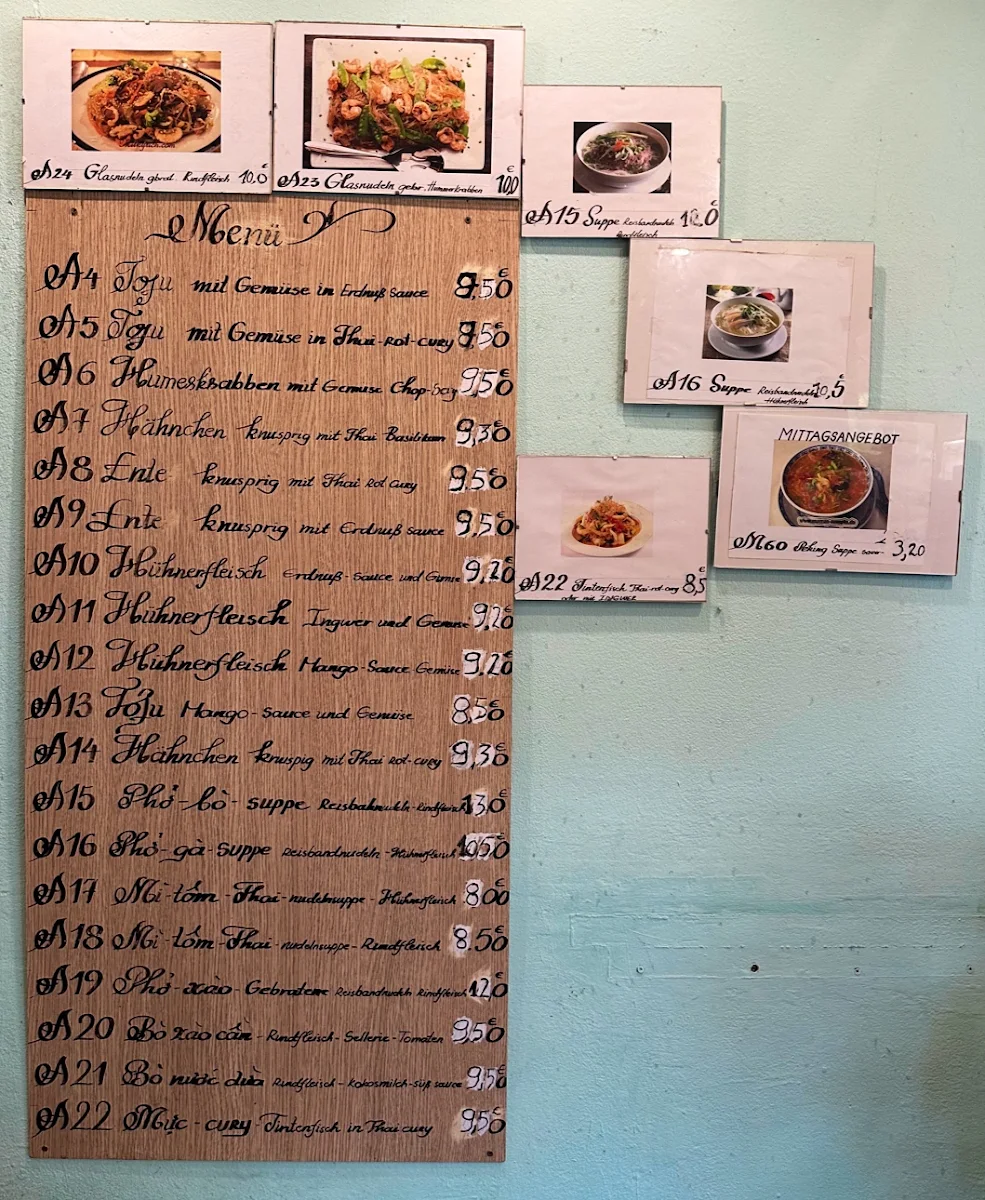 A24 Glasnudeln gbrat. Rindfleisch 10,0€
A23 Glasnudeln gebr. Hummerkrabben 10,0€
A15 Suppe Reisbandnudeln
Rindfleisch
A16 Suppe Reisbandnudeln 10,5€
Hühnerfleisch
MITTAGSANGEBOT
M60 Peking Suppe sauer 3,20
A22 Tintenfisch Thai-rot-cury 8,5€
oder mit INGWER
Menü
A4 Tofu mit Gemüse in Erdnuß Sauce 8,50€
A5 Tofu mit Gemüse in Thai-Rot-cury 8,50€
A6 Humerskrabben mit Gemüse Chop-Soey 9,50€
A7 Hähnchen knusprig mit Thai Basilikum 9,30€
A8 Ente knusprig mit Thai Rot cury 9,50€
A9 Ente knusprig mit Erdnuß sauce 9,50€
A10 Hühnerfleisch Erdnuß-sauce und Gemüse 9,20€
A11 Hühnerfleisch Ingwer und Gemüse 9,20€
A12 Hühnerfleisch Mango-Sauce Gemüse 9,20€
A13 Tofu Mango-Sauce und Gemüse 8,50€
A14 Hähnchen knuspig mit Thai Rot-cury 9,30€
A15 Phở-bò-suppe Reisbahnudeln-Rindfleisch 13,0€
A16 Phở-gà-suppe Reisbandnudeln-Hühnerfleisch 10,50€
A17 Mì-tôm-Thai-nudelnsuppe-Hühnerfleisch 8.00€
A18 Mì-tôm-Thai-nudelnsuppe-Rindfleisch 8.50€
A19 Phở-xào-Gebratene Reisbandnudeln Rindfleisch 12,0€
A20 Bò xào cần-Rindfleisch-Sellerie-Tomaten 9,50€
A21 Bò nước dừa Rindfleisch-Kokosmilch-süß sauce 9,50€
A22 Mực-cury-Tintenfisch in Thai cury 9,50€